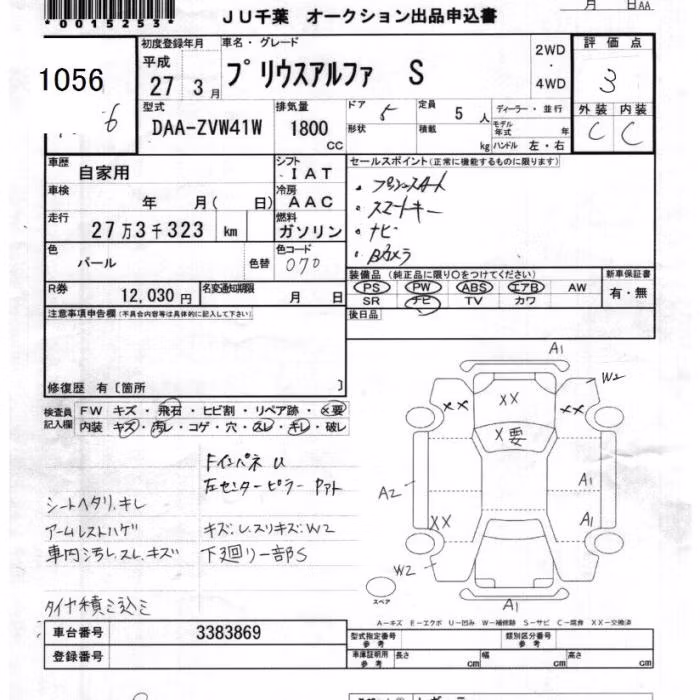 *0015253*
JU千葉 オークション出品申込書
月 日AA
1056
6
初度登録年月
平成
27 3月
車名・グレード
プリウスアルファ S
2WD
・
4WD
評価点
3
外装 内装
C C
型式
DAA-ZVW41W
排気量
1800
CC
ドア 5
形状
定員 5 人
積載 kg
ディーラー・並行
モデル年式 年
ハンドル 左・右
車歴
自家用
シフト
IAT
車検
年 月( 日)
冷房
AAC
走行
27万3千323 km
燃料
ガソリン
色
パール
色替
色コード
070
R券
12,030円
名変通知期限
月 日
セールスポイント(正常に機能するものに限ります)
・スマートキー
・ナビ
・Bカメラ
装備品 (純正品に限り○をつけてください)
PS PW ABS エアB AW
SR ナビ TV カワ
新車保証書
有・無
後日品
注意事項申告欄(不具合内容等は具体的に記入して下さい)
修復歴 有〔箇所 〕
検査員記入欄
FW キズ・飛石・ヒビ割・リペア跡・×要
内装 キズ・汚レ・コゲ・穴・スレ・キレ・破レ
Fインパネ U
左センターピラー
シートヘタリ.キレ
アームレストハゲ
車内汚レ.スレ.キズ
キズ.U.スリキズ.W2
下廻リ一部S
タイヤ積ミ込ミ
A1
W2
XX
XX
XX
X要
A2
A1
A1
XX
W2
A1
スペア
A-キズ E-エクボ U-凹み W-補修跡 S-サビ C-腐食 XX-交換済
車台番号 3383869
登録番号
型式指定番号
参考
類別区分番号
参考
車庫証明用
参考
長さ cm
幅 cm
高さ cm